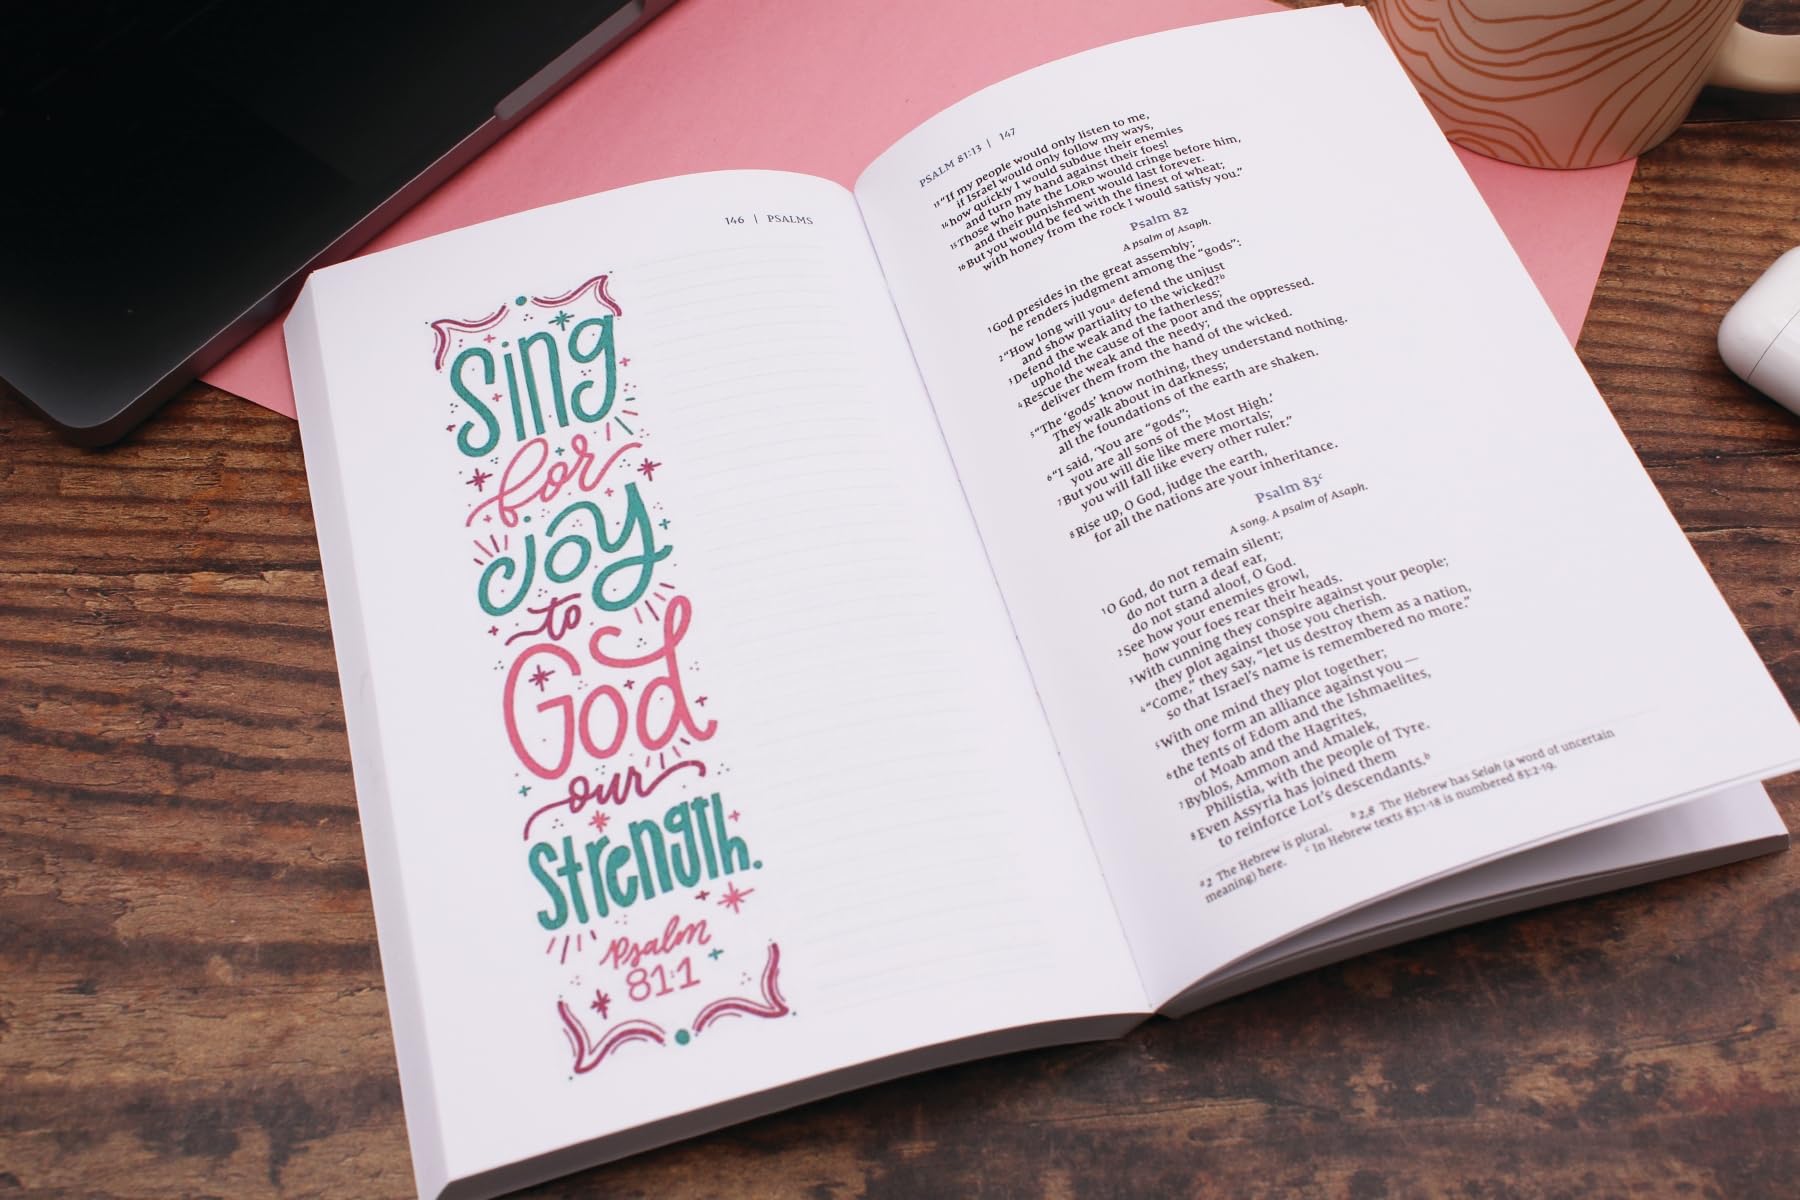 146 | PSALMS
Sing
for
joy
to
God
our
Strength.
Psalm
81:1
PSALM 81:13 | 147
13 “If my people would only listen to me,
if Israel would only follow my ways,
14 how quickly I would subdue their enemies
and turn my hand against their foes!
15 Those who hate the LORD would cringe before him,
and their punishment would last forever.
16 But you would be fed with the finest of wheat;
with honey from the rock I would satisfy you.”
Psalm 82
A psalm of Asaph.
1 God presides in the great assembly;
he renders judgment among the “gods”:
2 “How long will you a defend the unjust
and show partiality to the wicked? b
3 Defend the weak and the fatherless;
uphold the cause of the poor and the oppressed.
4 Rescue the weak and the needy;
deliver them from the hand of the wicked.
5 “The ‘gods’ know nothing, they understand nothing.
They walk about in darkness;
all the foundations of the earth are shaken.
6 “I said, ‘You are “gods”;
you are all sons of the Most High.’
7 But you will die like mere mortals;
you will fall like every other ruler.”
8 Rise up, O God, judge the earth,
for all the nations are your inheritance.
Psalm 83 c
A song. A psalm of Asaph.
1 O God, do not remain silent;
do not turn a deaf ear,
do not stand aloof, O God.
2 See how your enemies growl,
how your foes rear their heads.
3 With cunning they conspire against your people;
they plot against those you cherish.
4 “Come,” they say, “let us destroy them as a nation,
so that Israel’s name is remembered no more.”
5 With one mind they plot together;
they form an alliance against you —
6 the tents of Edom and the Ishmaelites,
of Moab and the Hagrites,
7 Byblos, Ammon and Amalek,
Philistia, with the people of Tyre.
8 Even Assyria has joined them
to reinforce Lot’s descendants. b
a 2 The Hebrew is plural. b 2,8 The Hebrew has Selah (a word of uncertain
meaning) here. c In Hebrew texts 83:1-18 is numbered 83:2-19.